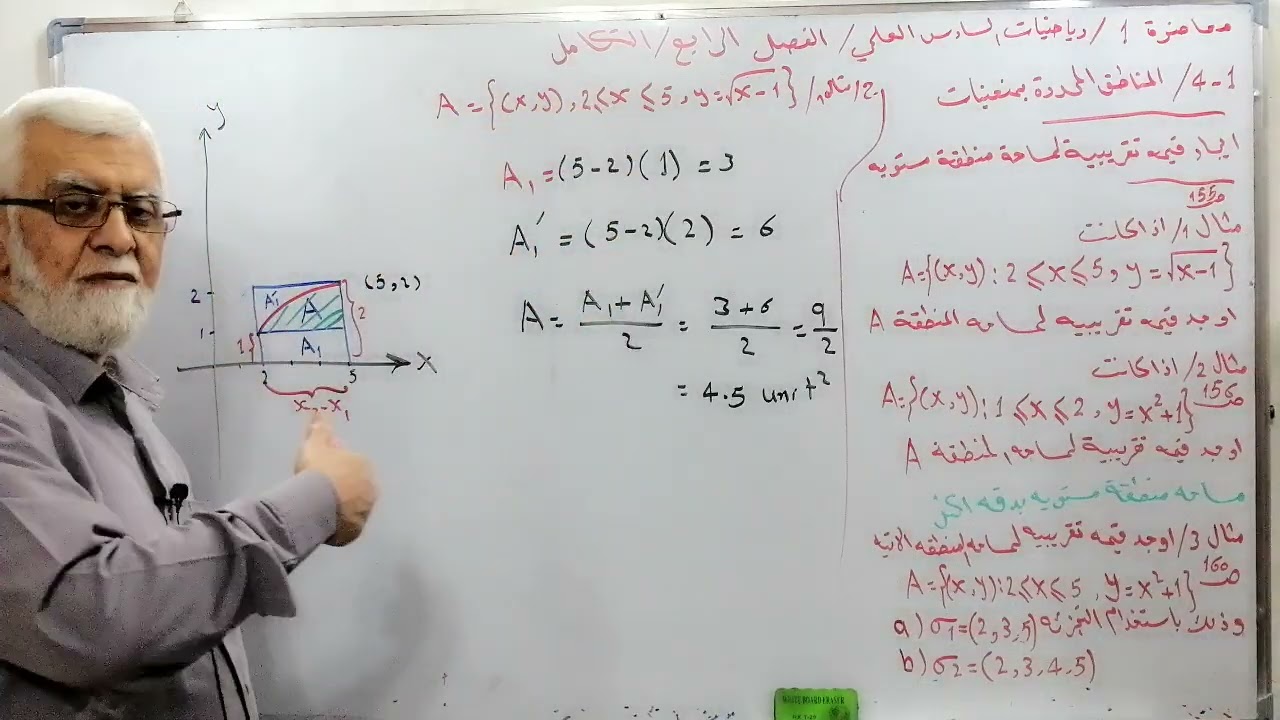 محاضرة 1 / رياضيات السادس العلمي / الفصل الرابع / التكامل
4-1 / المناطق المحددة بمنحنيات
ايجاد قيمه تقريبية لمساحة منطقة مستويه
ص155
مثال 1/ اذا كانت
A={(x,y): 2≤x≤5, y=√x-1}
اوجد قيمه تقريبيه لمساحه المنطقة A
مثال 2/ اذا كانت
ص156
A={(x,y): 1≤x≤2, y=x²+1}
اوجد قيمه تقريبية لمساحه المنطقه A
مساحه منطقة مستويه بدقه اكبر
مثال 3/ اوجد قيمه تقريبيه لمساحه المنطقه الاتيه
ص160
A={(x,y): 2≤x≤5, y=x²+1}
وذلك باستخدام التجزئه
a) σ1=(2,3,5)
b) σ2=(2,3,4,5)
A={(x,y), 2≤x≤5, y=√x-1}
A₁=(5-2)(1)=3
A₁′=(5-2)(2)=6
A=(A₁+A₁′)/2=(3+6)/2=9/2
=4.5 unit²
y
(5,2)
2
A₁′
A
2
1
1
A₁
x
2
5
x₂-x₁
WHITE BOARD ERASER